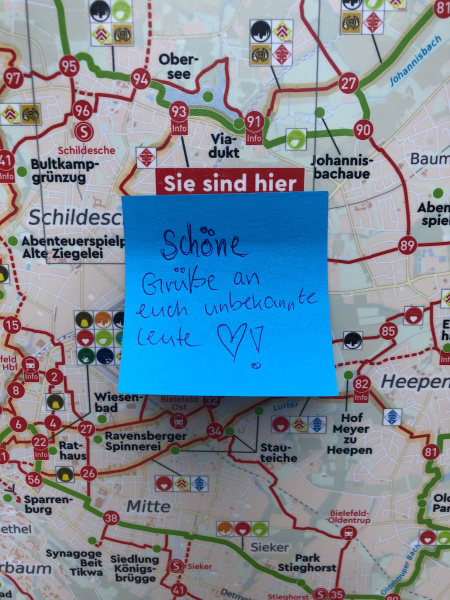 81
95
94
Ober-
see
27
Johannisbach
97
96
93
Info
91
Info
90
Schildesche
S
Via-
dukt
41
Info
Bultkamp-
grünzug
Johannis-
bachaue
Baum
Sie sind hier
Schildesc
Aben
spiel
Abenteuerspielp
Alte Ziegelei
89
Schöne
Grüße an
euch unbekannte
leute ♡!
15
85
Info
efeld
Hbf
Info
2
8
Wiesen-
bad
Bielefeld
Ost
32
Lutter
82
Info
Heepen
6
4
22
Info
27
Rat-
haus
Ravensberger
Spinnerei
34
Stau-
teiche
Hof
Meyer
zu
Heepen
81
56
26
Sparren-
burg
Mitte
38
Bielefeld-
Oldentrup
Old
Par
ethel
Sieker
Oldentruper Bach
Synagoge
Beit
Tikwa
Siedlung
Königs-
brügge
S
Sieker
Park
Stieghorst
rbaum
41
Detmo
S
Stieghorst
35